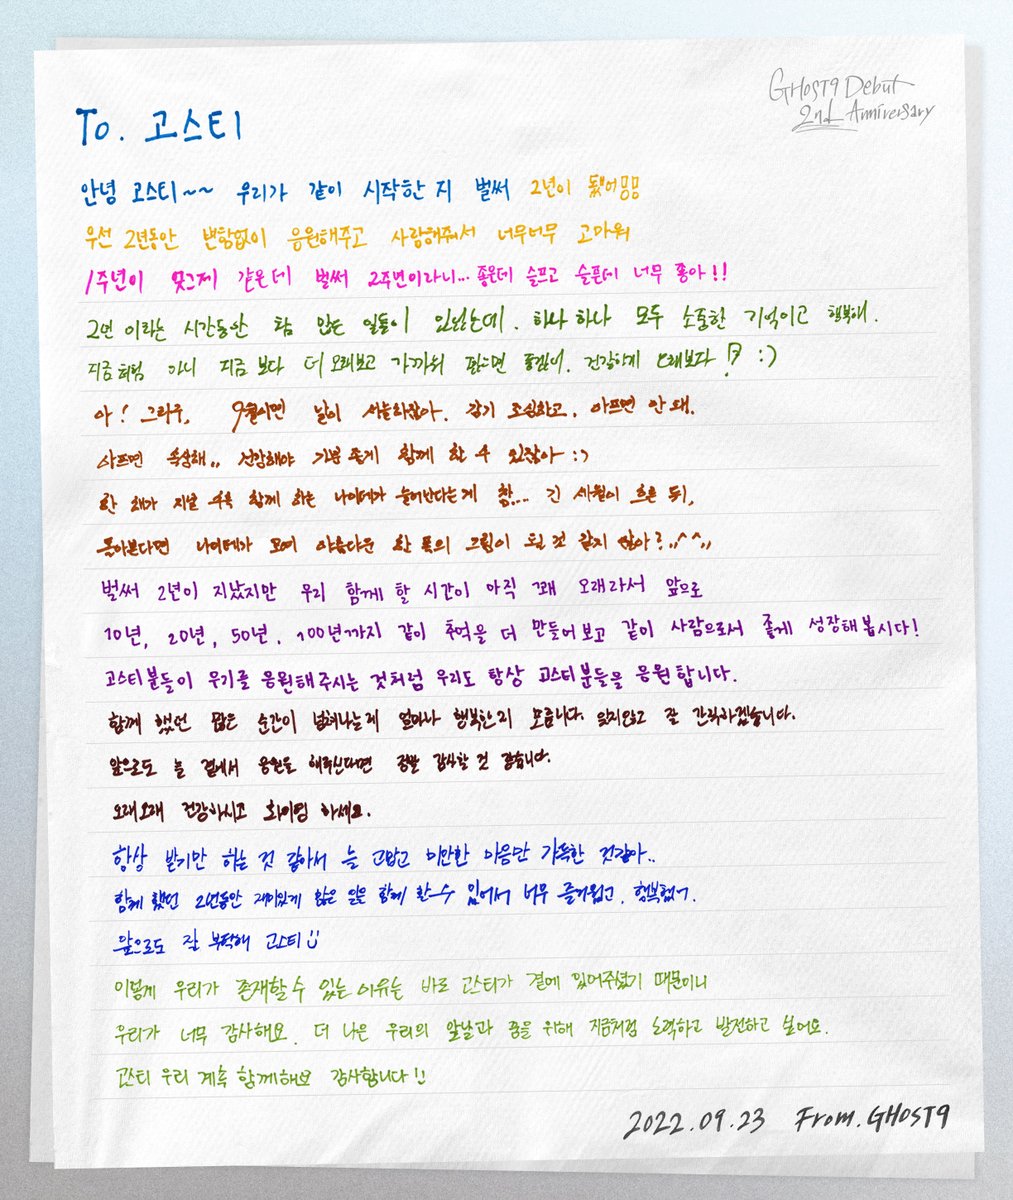 GHOST9 Debut
2nd Anniversary
To. 고스티
안녕 고스티~~ 우리가 같이 시작한 지 벌써 2년이 됐어
우선 2년동안 변함없이 응원해주고 사랑해줘서 너무너무 고마워
1주년이 엊그제 같은데 벌써 2주년이라니... 좋은데 슬프고 슬픈데 너무 좋아!!
2년 이라는 시간동안 참 많은 일들이 있었는데. 하나 하나 모두 소중한 기억이고 행복해.
지금처럼 아니 지금 보다 더 오래보고 가까워 졌으면 좋겠어. 건강하게 오래보자 :)
아! 그리구, 9월이면 날이 서늘하잖아. 감기 조심하고. 아프면 안돼.
아프면 속상해.. 건강해야 기분 좋게 함께 할 수 있잖아 :)
한 해가 지날 수록 함께 하는 나이테가 늘어난다는게 참... 긴 세월이 흐른 뒤,
돌아본다면 나이테가 모여 아름다운 한 폭의 그림이 될 것 같지 않아?,,^^,,
벌써 2년이 지났지만 우리 함께 할 시간이 아직 꽤 오래라서 앞으로
10년, 20년, 50년, 100년까지 같이 추억을 더 만들어보고 같이 사람으로서 좋게 성장해봅시다!
고스티분들이 우기를 응원해주시는 것처럼 우리도 항상 고스티분들을 응원합니다.
함께 했던 많은 순간이 넘쳐나는게 얼마나 행복한지 모릅니다. 잊지않고 잘 간직하겠습니다.
앞으로도 늘 곁에서 응원을 해주신다면 정말 감사할 것 같습니다.
오래오래 건강하시고 화이팅 하세요.
항상 받기만 하는 것 같아서 늘 고맙고 미안한 마음만 가득한 것같아..
함께 했던 2년동안 재미있게 많은 일은 함께 할수 있어서 너무 즐거웠고, 행복했어.
앞으로도 잘 부탁해 고스티
이렇게 우리가 존재할 수 있는 이유는 바로 고스티가 곁에 있어주셨기 때문이니
우리가 너무 감사해요. 더 나은 우리의 앞날과 꿈을 위해 지금처럼 노력하고 발전하고 싶어요.
고스티 우리 계속 함께해요 감사합니다
2022.09.23 From. GHOST9